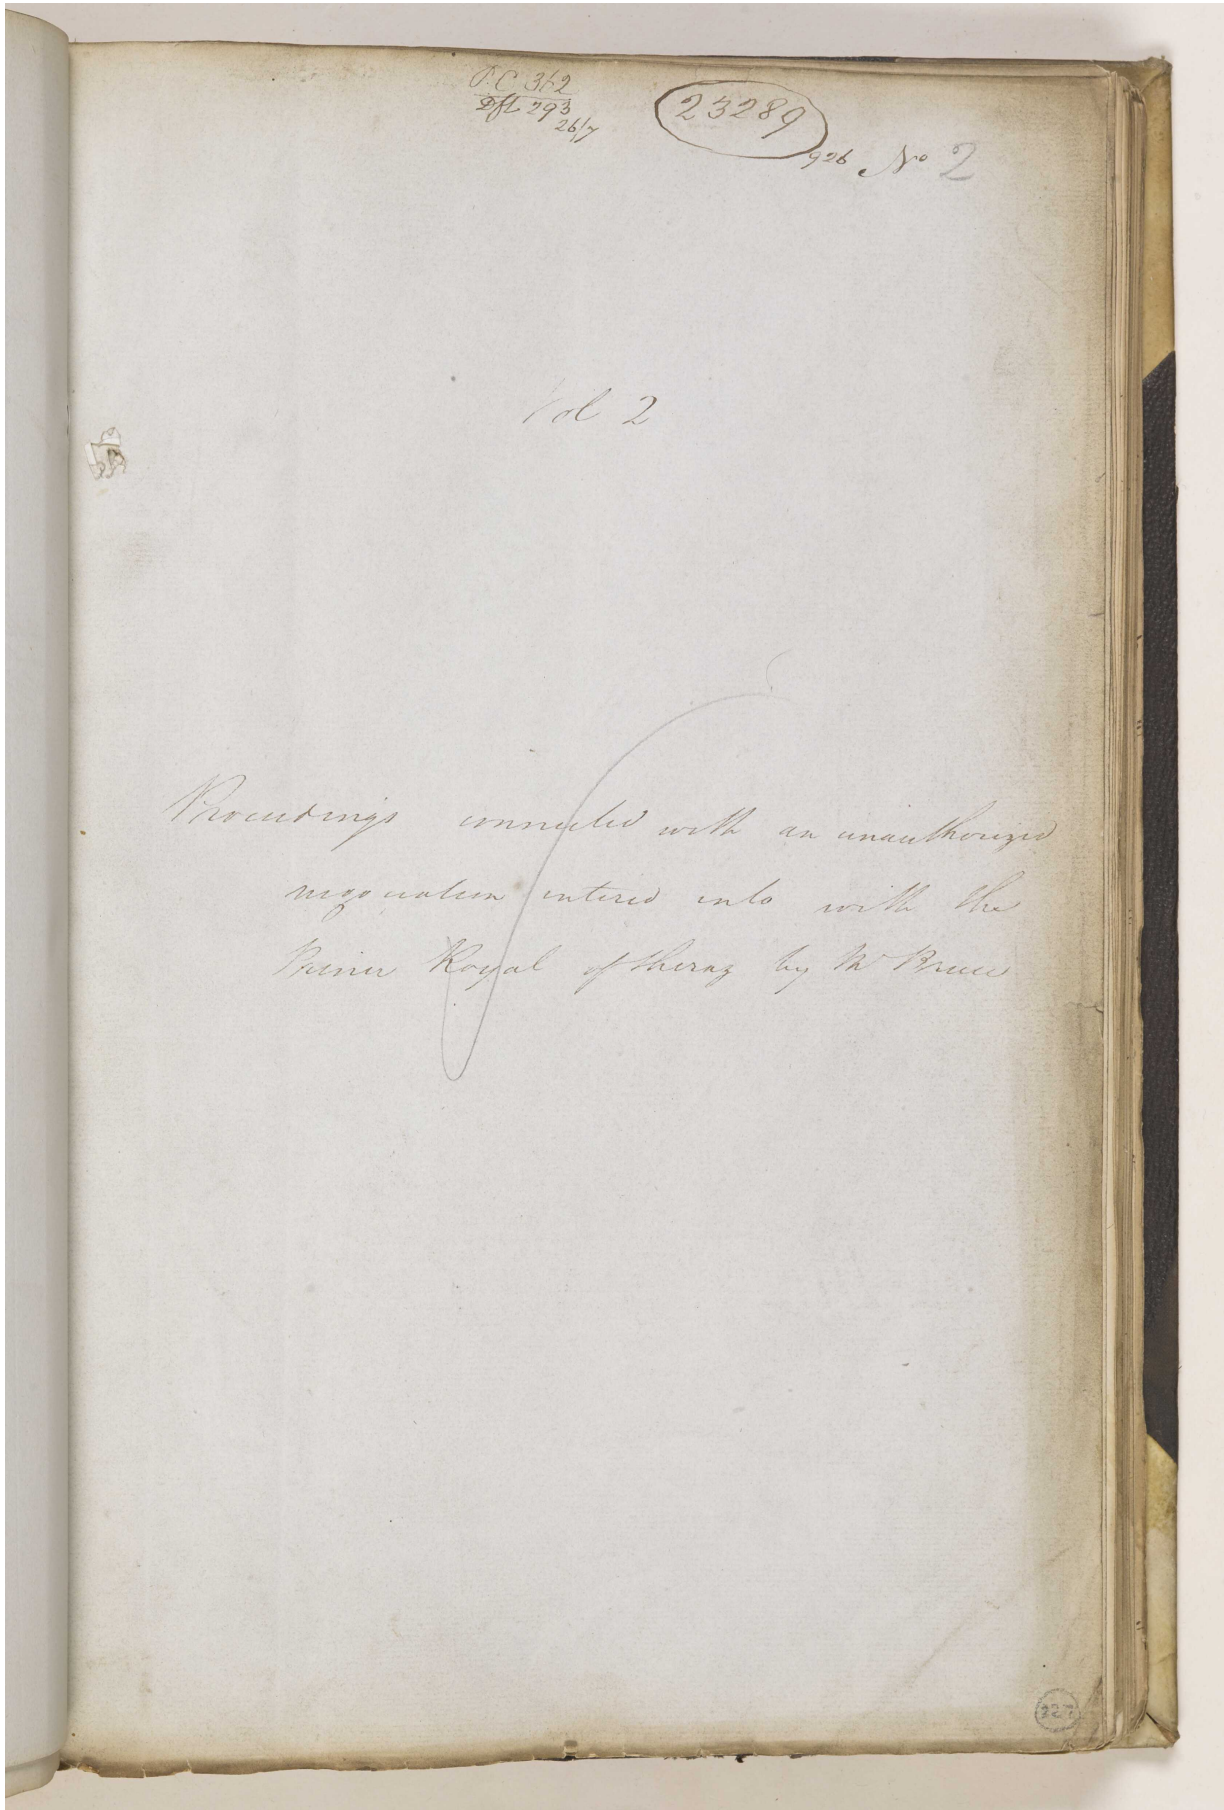 P.C 362
Dft 293
26/7
23289
926 No 2
Vol 2
Proceedings connected with an unauthorized
negociation entered into with the
Prince Royal of Sheraz by Mr Bruce